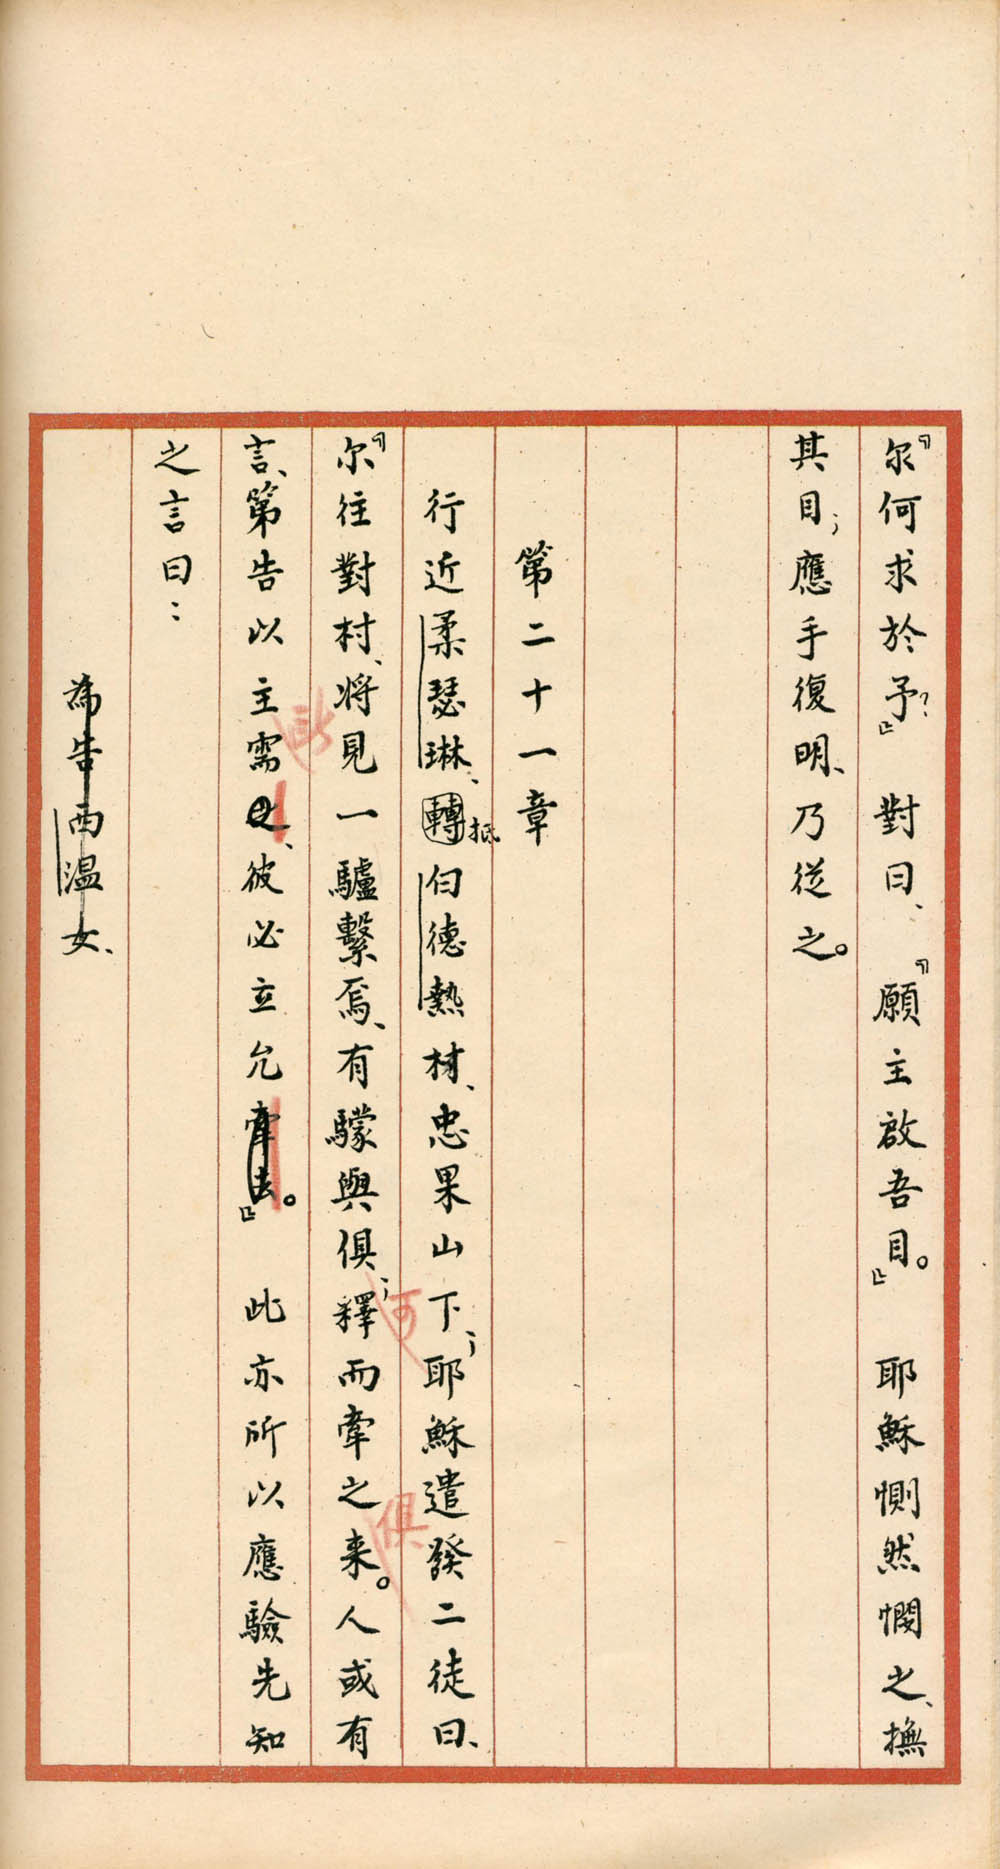 『尔何求於予？』對曰、『願主啟吾目。』耶穌惻然憫之、撫
其目；應手復明、乃從之。
第二十一章
行近柔瑟琳、轉抵伯德熱村、忠果山下；耶穌遣發二徒曰、
『尔往對村、將見一驢繫焉、有驂與俱；釋而牽之来。人或有
言、第告以主需之、彼必立允牽去。』此亦所以應驗先知
之言曰：
為告西温女、
可
俱